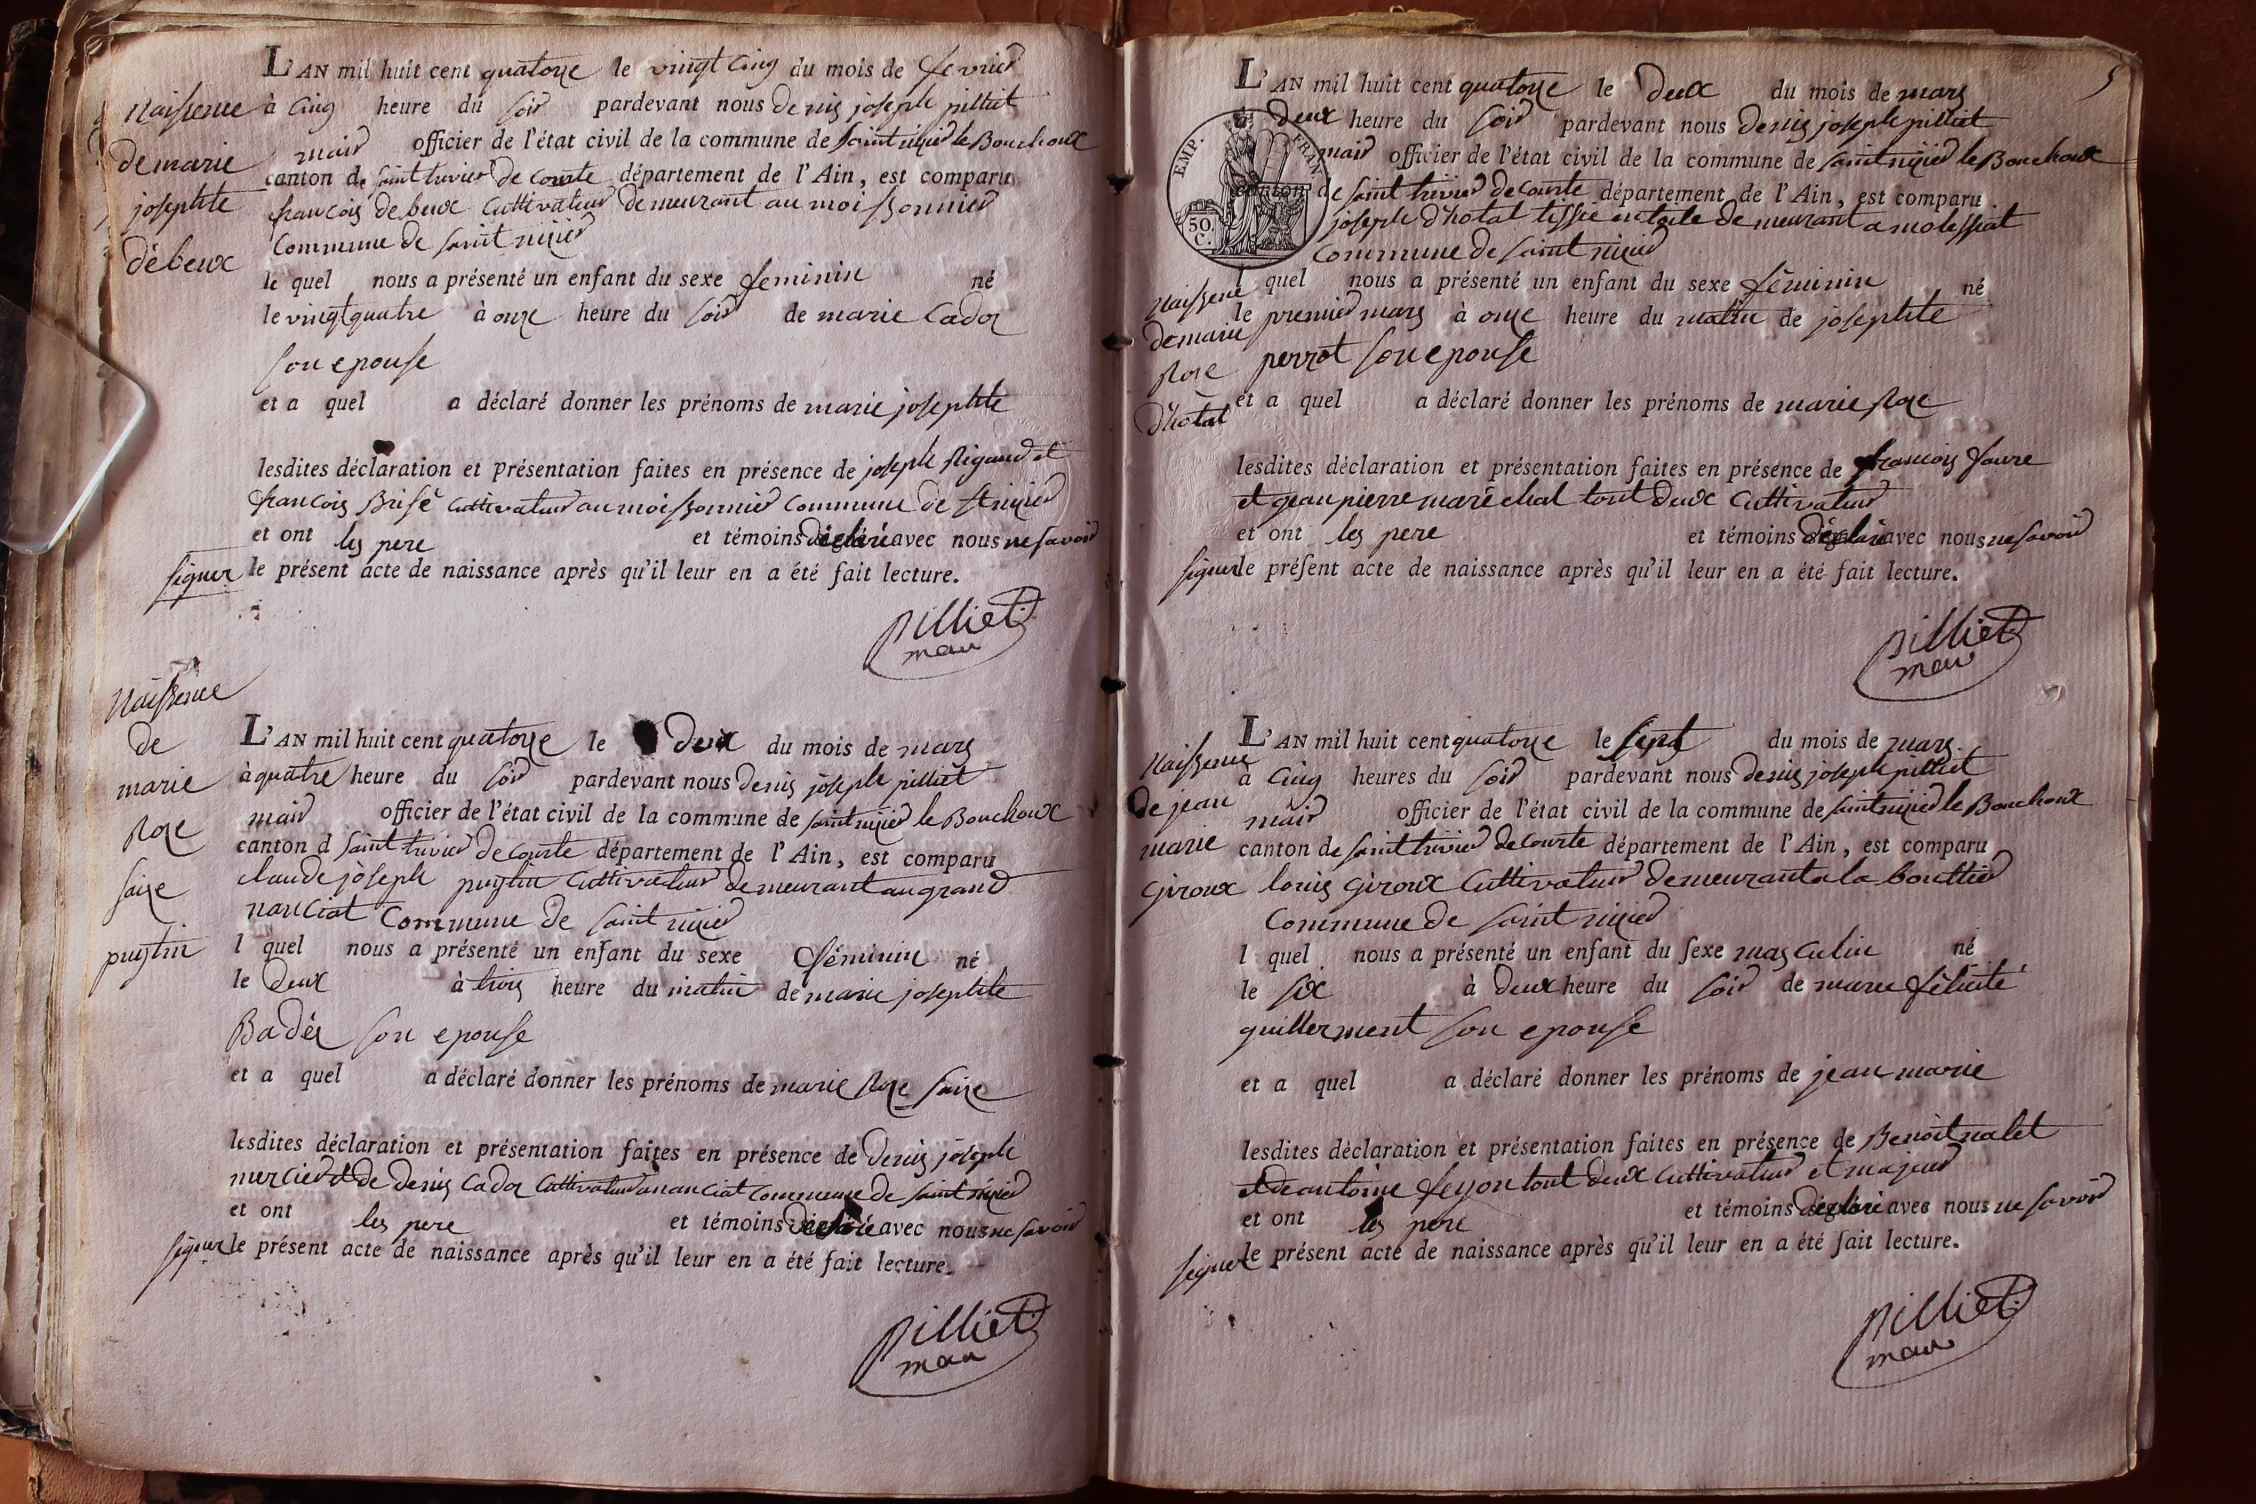 L'AN mil huit cent quatorze le vingt cinq du mois de fevrier
Naissence à cinq heure du soir pardevant nous denis joseph pilliet
de marie mair officier de l'état civil de la commune de saint nizier le Bouchoux
canton de saint trivier de courte département de l'Ain, est comparu
josephte francois debeux cultivateur demeurant au moissonnier
commune de saint nizier
débeux
le quel nous a présenté un enfant du sexe feminin né
le vingt quatre à onze heure du soir de marie Cadoz
son epouse
et a quel a déclaré donner les prénoms de marie josephte
lesdites déclaration et présentation faites en présence de joseph Rigaud et
francois Brisé cultivateur au moissonnier commune de st nizier
et ont les pere et témoins déclaré avec nous ne savoir
signer le présent acte de naissance après qu'il leur en a été fait lecture.
pilliet
mair
Naissence
de
marie
Roze
saize
puytin
L'AN mil huit cent quatorze le deux du mois de mars
à quatre heure du soir pardevant nous denis joseph pilliet
mair officier de l'état civil de la commune de saint nizier le Bouchoux
canton d saint trivier de courte département de l'Ain, est comparu
claude joseph puytin cultivateur demeurant au grand
nanciat commune de saint nizier
l quel nous a présenté un enfant du sexe féminin né
le deux à trois heure du matin de marie josephte
Badéz son epouse
et a quel a déclaré donner les prénoms de marie Roze saize
lesdites déclaration et présentation faites en présence de denis joseph
mercier et de denis Cadoz cultivateur a nanciat commune de saint nizier
et ont les pere et témoins déclaré avec nous ne savoir
signer le présent acte de naissance après qu'il leur en a été fait lecture.
pilliet
mair
5
L'AN mil huit cent quatorze le deux du mois de mars
à deux heure du soir pardevant nous denis joseph pilliet
mair officier de l'état civil de la commune de saint nizier le Bouchoux
canton de saint trivier de courte département de l'Ain, est comparu
joseph d'hotal tissié en toile demeurant a molessiat
commune de saint nizier
EMP. FRAN.
50.
C.
Naissence
de marie
Roze
d'hotal
l quel nous a présenté un enfant du sexe féminin né
le premier mars à onze heure du matin de josephte
perrot son epouse
et a quel a déclaré donner les prénoms de marie Roze
lesdites déclaration et présentation faites en présence de francois favre
et jean pierre maréchal tout deux cultivateur
et ont les pere et témoins déclaré avec nous ne savoir
signer le présent acte de naissance après qu'il leur en a été fait lecture.
pilliet
mair
Naissence
de jean
marie
Giroux
L'AN mil huit cent quatorze le sept du mois de mars
à cinq heures du soir pardevant nous denis joseph pilliet
mair officier de l'état civil de la commune de saint nizier le Bouchoux
canton de saint trivier de courte département de l'Ain, est comparu
louis Giroux cultivateur demeurant a la bouttier
commune de saint nizier
l quel nous a présenté un enfant du sexe masculin né
le six à deux heure du soir de marie félicité
guillerment son epouse
et a quel a déclaré donner les prénoms de jean marie
lesdites déclaration et présentation faites en présence de Benoit nalet
et de antoine feyon tout deux cultivateur et majeur
et ont les pere et témoins déclaré avec nous ne savoir
signer le présent acte de naissance après qu'il leur en a été fait lecture.
pilliet
mair